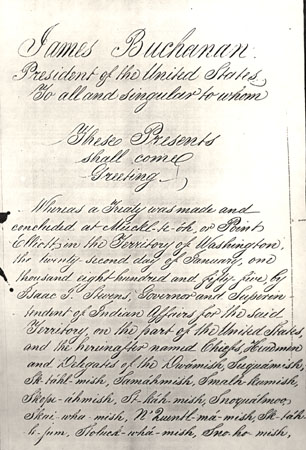 James Buchanan.
President of the United States,
To all and singular to whom
These Presents
shall come,
Greeting,
Whereas a Treaty was made and
concluded at Múckl-te-óh, or Point
Elliott, in the Territory of Washington,
the twenty second day of January, one
thousand eight hundred and fifty five, by
Isaac I. Stevens, Governor and Superin-
tendent of Indian Affairs for the said
Territory, on the part of the United States,
and the hereinafter named Chiefs, Headmen
and Delegates of the Dwámish, Suquámish,
Sk-táhl-mish, Samáhmish, Smalh-kamish,
Skope-áhmish, St-káh-mish, Snoqualmoo,
Skai-wha-mish, N'Quentl-má-mish, Sk-táh-
le-jum, Stoluck-whá-mish, Sno-ho-mish,